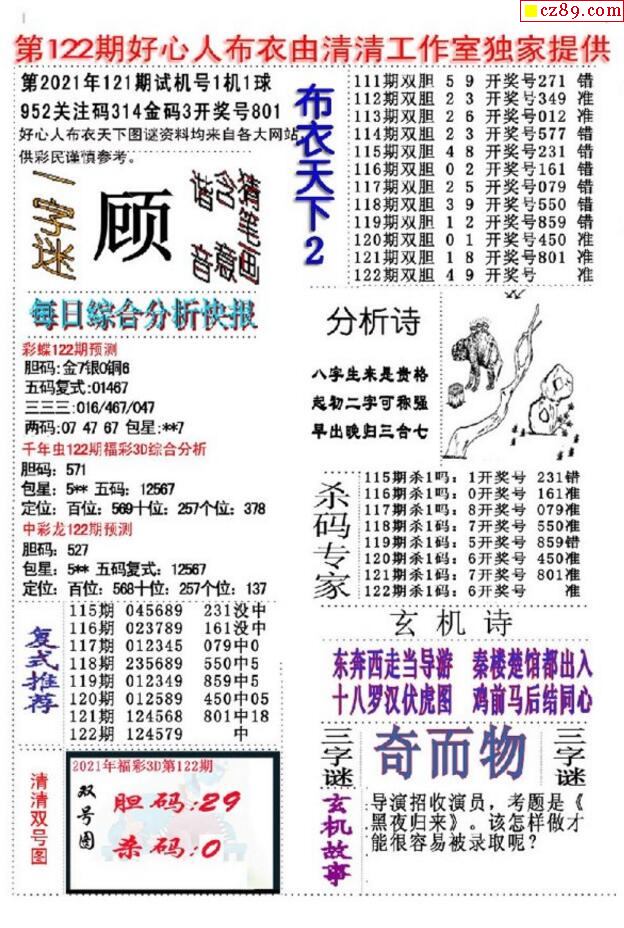 cz89.com
第122期好心人布衣由清清工作室独家提供
第2021年121期试机号1机1球
952关注码314金码3开奖号801
好心人布衣天下图谜资料均来自各大网站,
供彩民谨慎参考。
一字迷
顾
谐音
含意
猜笔画
布衣天下2
111期双胆 5 9 开奖号271 错
112期双胆 2 3 开奖号349 准
113期双胆 2 6 开奖号012 准
114期双胆 2 3 开奖号577 错
115期双胆 4 8 开奖号231 错
116期双胆 0 2 开奖号161 错
117期双胆 2 5 开奖号079 错
118期双胆 3 9 开奖号550 错
119期双胆 1 2 开奖号859 错
120期双胆 0 1 开奖号450 准
121期双胆 1 8 开奖号801 准
122期双胆 4 9 开奖号 准
每日综合分析快报
彩蝶122期预测
胆码:金7银0铜6
五码复式:01467
三三三:016/467/047
两码:07 47 67 包星:**7
千年虫122期福彩3D综合分析
胆码：571
包星：5** 五码：12567
定位：百位：569十位：257个位：378
中彩龙122期预测
胆码：527
包星：5** 五码复式：12567
定位：百位：568十位：257个位：137
分析诗
八字生来是贵格
起初二字可称强
早出晚归三合七
杀码专家
115期杀1吗：1开奖号 231错
116期杀1吗：0开奖号 161准
117期杀1吗：8开奖号 079准
118期杀1码：7开奖号 550准
119期杀1码：5开奖号 859错
120期杀1码：6开奖号 450准
121期杀1码：7开奖号 801准
122期杀1码：6开奖号 准
复式推荐
115期 045689 231没中
116期 023789 161没中
117期 012345 079中0
118期 235689 550中5
119期 012349 859中5
120期 012589 450中05
121期 124568 801中18
122期 124579 中
玄机诗
东奔西走当导游 秦楼楚馆都出入
十八罗汉伏虎图 鸡前马后结同心
三字谜
奇而物
三字谜
清清双号图
2021年福彩3D第122期
双号图
胆码:29
杀码:0
玄机故事
导演招收演员，考题是《
黑夜归来》。该怎样做才
能很容易被录取呢？